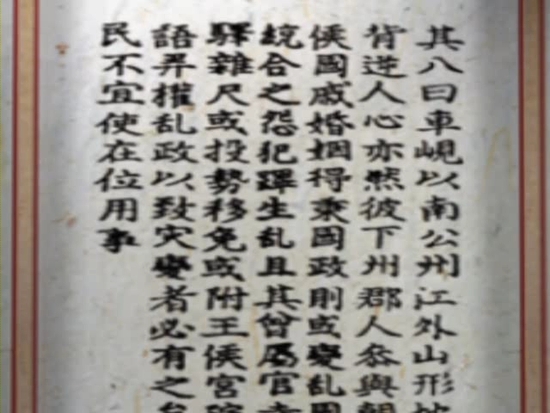 其八曰車峴以南公州江外山形
背逆人心亦然彼下州郡人叅與
侯國戚婚姻得秉國政則或變乱國
統合之怨犯蹕生乱且其曾屬官
驛雜尺或投勢移免或附王侯宮院
語弄權乱政以致災變者必有之
民不宜使在位用事